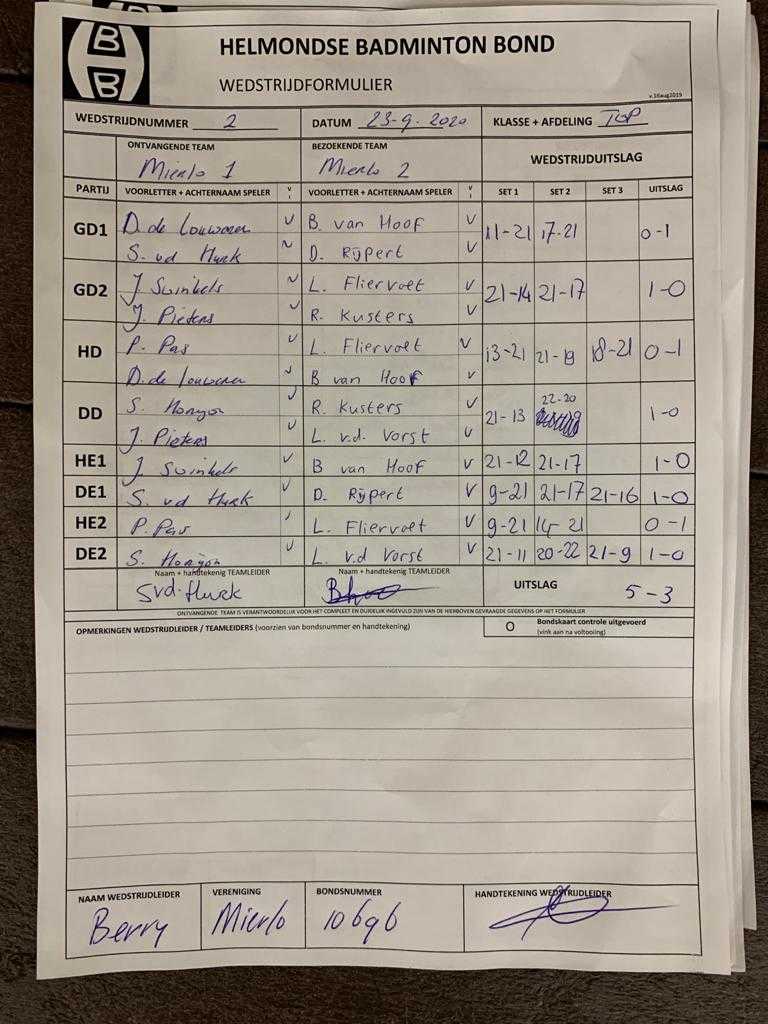 B
H
B
HELMONDSE BADMINTON BOND
WEDSTRIJDFORMULIER
v.16aug2019
WEDSTRIJDNUMMER 2 DATUM 23-9-2020 KLASSE + AFDELING TOP
ONTVANGENDE TEAM BEZOEKENDE TEAM WEDSTRIJDUITSLAG
Mierlo 1 Mierlo 2
PARTIJ VOORLETTER + ACHTERNAAM SPELER V VOORLETTER + ACHTERNAAM SPELER V SET 1 SET 2 SET 3 UITSLAG
GD1 D. de Louweren V B. van Hoof V 11-21 17-21 0-1
S. vd Hurk V D. Rijpert V
GD2 J. Swinkels V L. Fliervoet V 21-14 21-17 1-0
J. Pieters V R. Kusters V
HD P. Pas V L. Fliervoet V 13-21 21-19 18-21 0-1
D. de Louweren V B van Hoof V
DD S. V R. Kusters V 21-13 22-20 1-0
J. Pieters V L. v.d. Vorst V
HE1 J. Swinkels V B van Hoof V 21-12 21-17 1-0
DE1 S. vd Hurk V D. Rijpert V 9-21 21-17 21-16 1-0
HE2 P. Pas V L. Fliervoet V 9-21 14-21 0-1
DE2 S. V L. v.d Vorst V 21-11 20-22 21-9 1-0
Naam + handtekenig TEAMLEIDER Naam + handtekenig TEAMLEIDER UITSLAG 5-3
S vd. Hurk
ONTVANGENDE TEAM IS VERANTWOORDELIJK VOOR HET COMPLEET EN DUIDELIJK INGEVULD ZIJN VAN DE HIERBOVEN GEVRAAGDE GEGEVENS OP HET FORMULIER
OPMERKINGEN WEDSTRIJDLEIDER / TEAMLEIDERS (voorzien van bondsnummer en handtekening) O Bondskaart controle uitgevoerd
(vink aan na voltooiing)
NAAM WEDSTRIJDLEIDER VERENIGING BONDSNUMMER HANDTEKENING WEDSTRIJDLEIDER
Berry Mierlo 10696